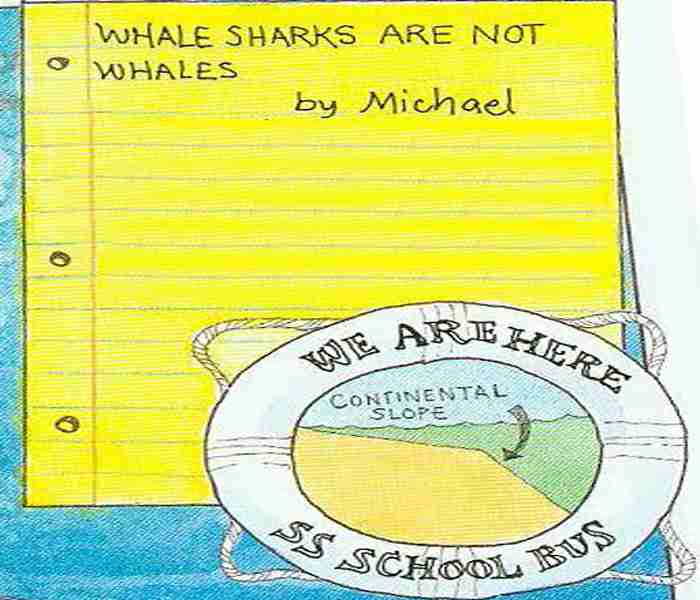 WHALE SHARKS ARE NOT
WHALES
by Michael
WE ARE HERE
CONTINENTAL
SLOPE
SS SCHOOL BUS